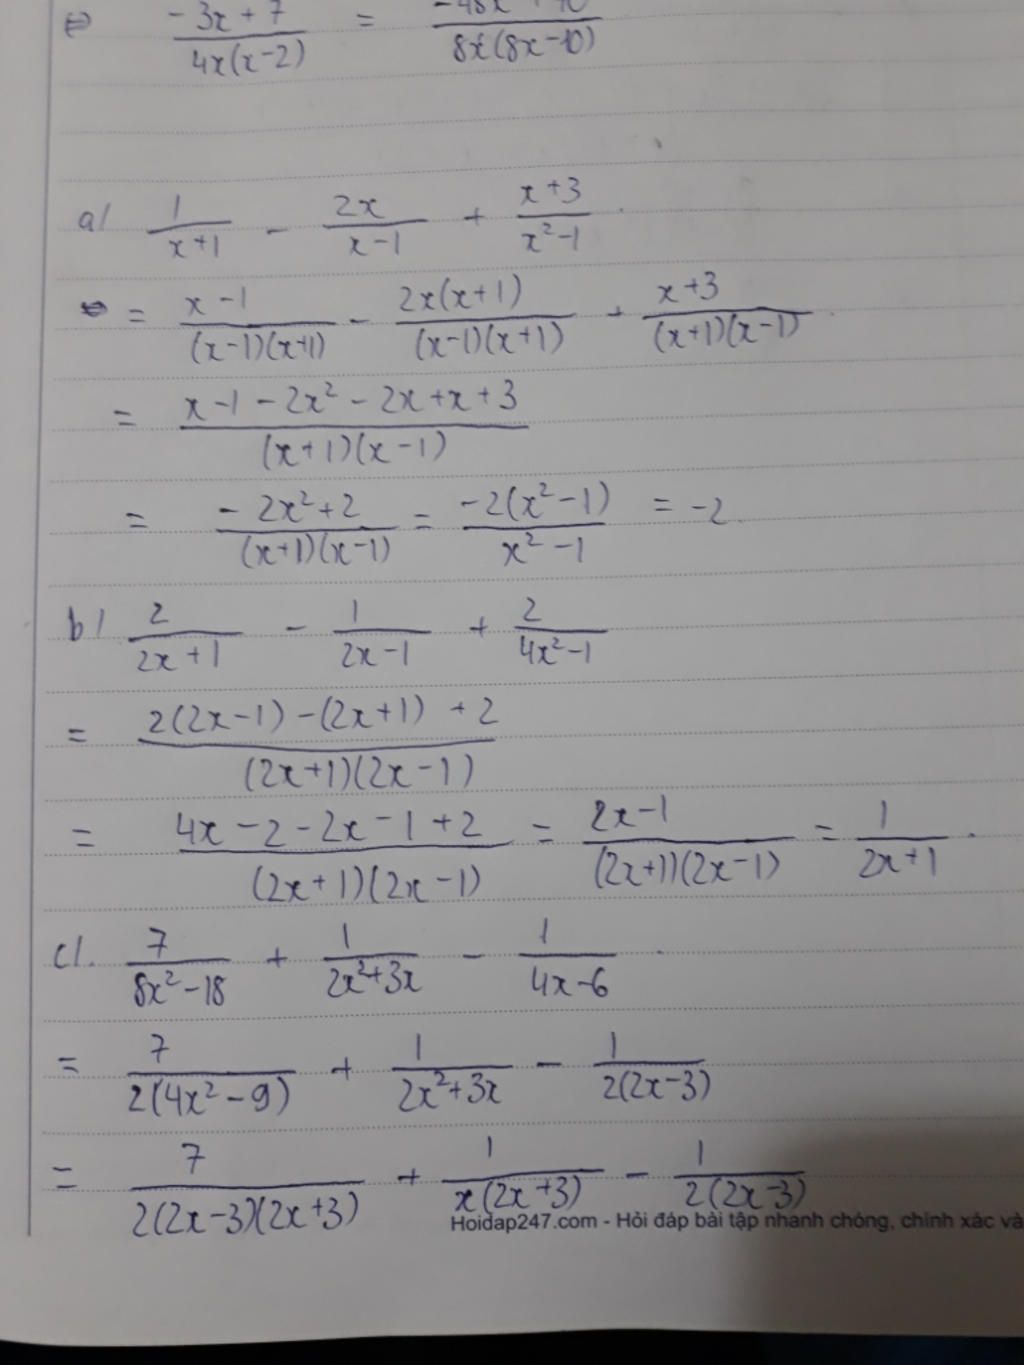 ⇔ (-3x+7)/(4x(x-2)) = /(8x(8x-10))
a/ 1/(x+1) - 2x/(x-1) + (x+3)/(x²-1)
= (x-1)/((x-1)(x+1)) - 2x(x+1)/((x-1)(x+1)) + (x+3)/((x+1)(x-1))
= (x-1-2x²-2x+x+3)/((x+1)(x-1))
= (-2x²+2)/((x+1)(x-1)) = -2(x²-1)/(x²-1) = -2
b/ 2/(2x+1) - 1/(2x-1) + 2/(4x²-1)
= (2(2x-1)-(2x+1)+2)/((2x+1)(2x-1))
= (4x-2-2x-1+2)/((2x+1)(2x-1)) = (2x-1)/((2x+1)(2x-1)) = 1/(2x+1).
c/. 7/(8x²-18) + 1/(2x²+3x) - 1/(4x-6)
= 7/(2(4x²-9)) + 1/(2x²+3x) - 1/(2(2x-3))
= 7/(2(2x-3)(2x+3)) + 1/(x(2x+3)) - 1/(2(2x-3))
Hoidap247.com - Hỏi đáp bài tập nhanh chóng, chính xác và